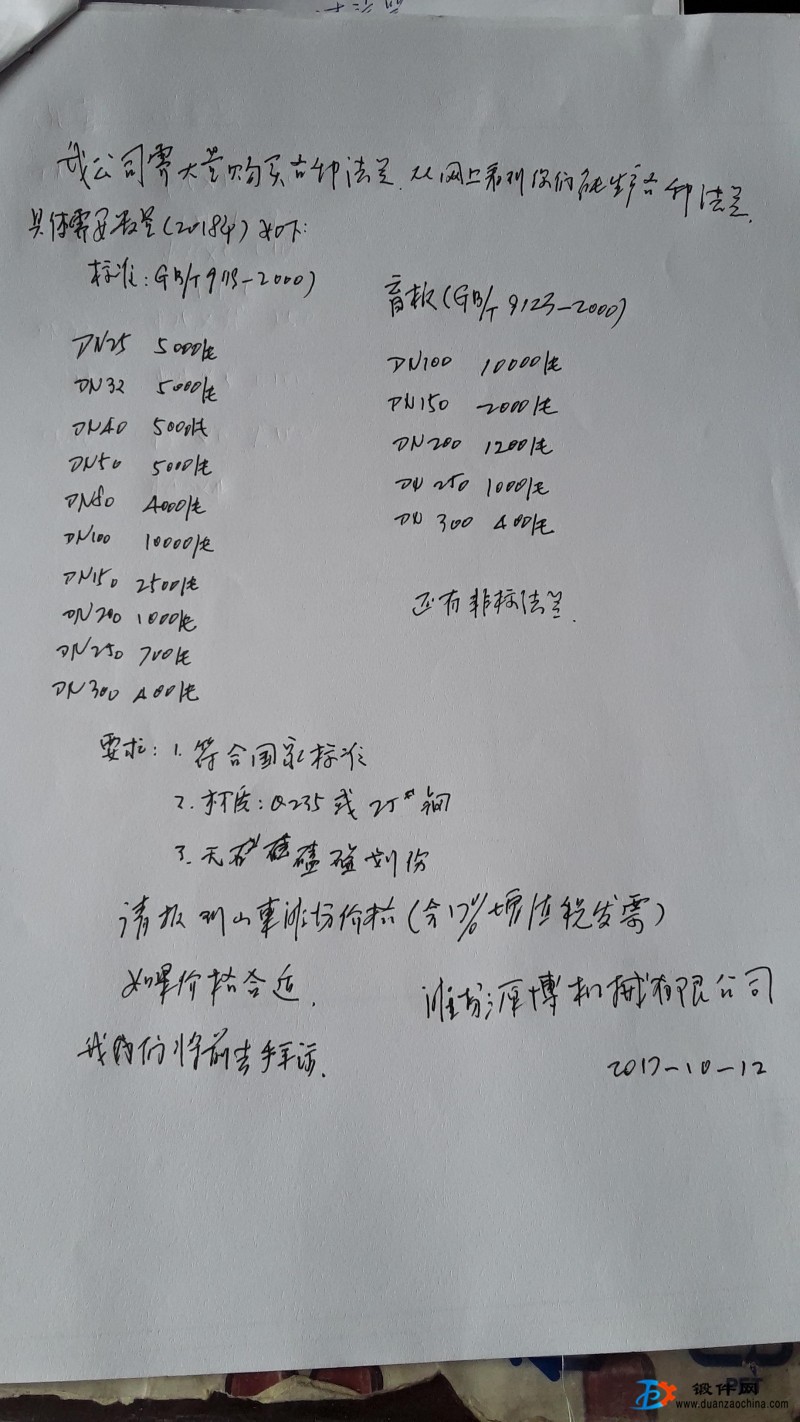 我公司需大量购买各种法兰,从网上看到你们能生产各种法兰,
具体需要数量(2018年)如下:
标准:GB/T 9113-2000)
DN25 5000/年
DN32 5000/年
DN40 5000/年
DN50 5000/年
DN80 4000/年
DN100 10000/年
DN150 2500/年
DN200 1000/年
DN250 700/年
DN300 400/年
盲板(GB/T 9123-2000)
DN100 10000/年
DN150 2000/年
DN200 1200/年
DN250 1000/年
DN300 400/年
还有非标法兰.
要求:1.符合国家标准
2.材质:Q235或25#钢
3.无磕碰划伤
请报到山东潍坊价格(含17%增值税发票)
如果价格合适,
我们将前去拜访.
潍坊博机械有限公司
2017-10-12
锻件网
www.duanzaochina.com
PET